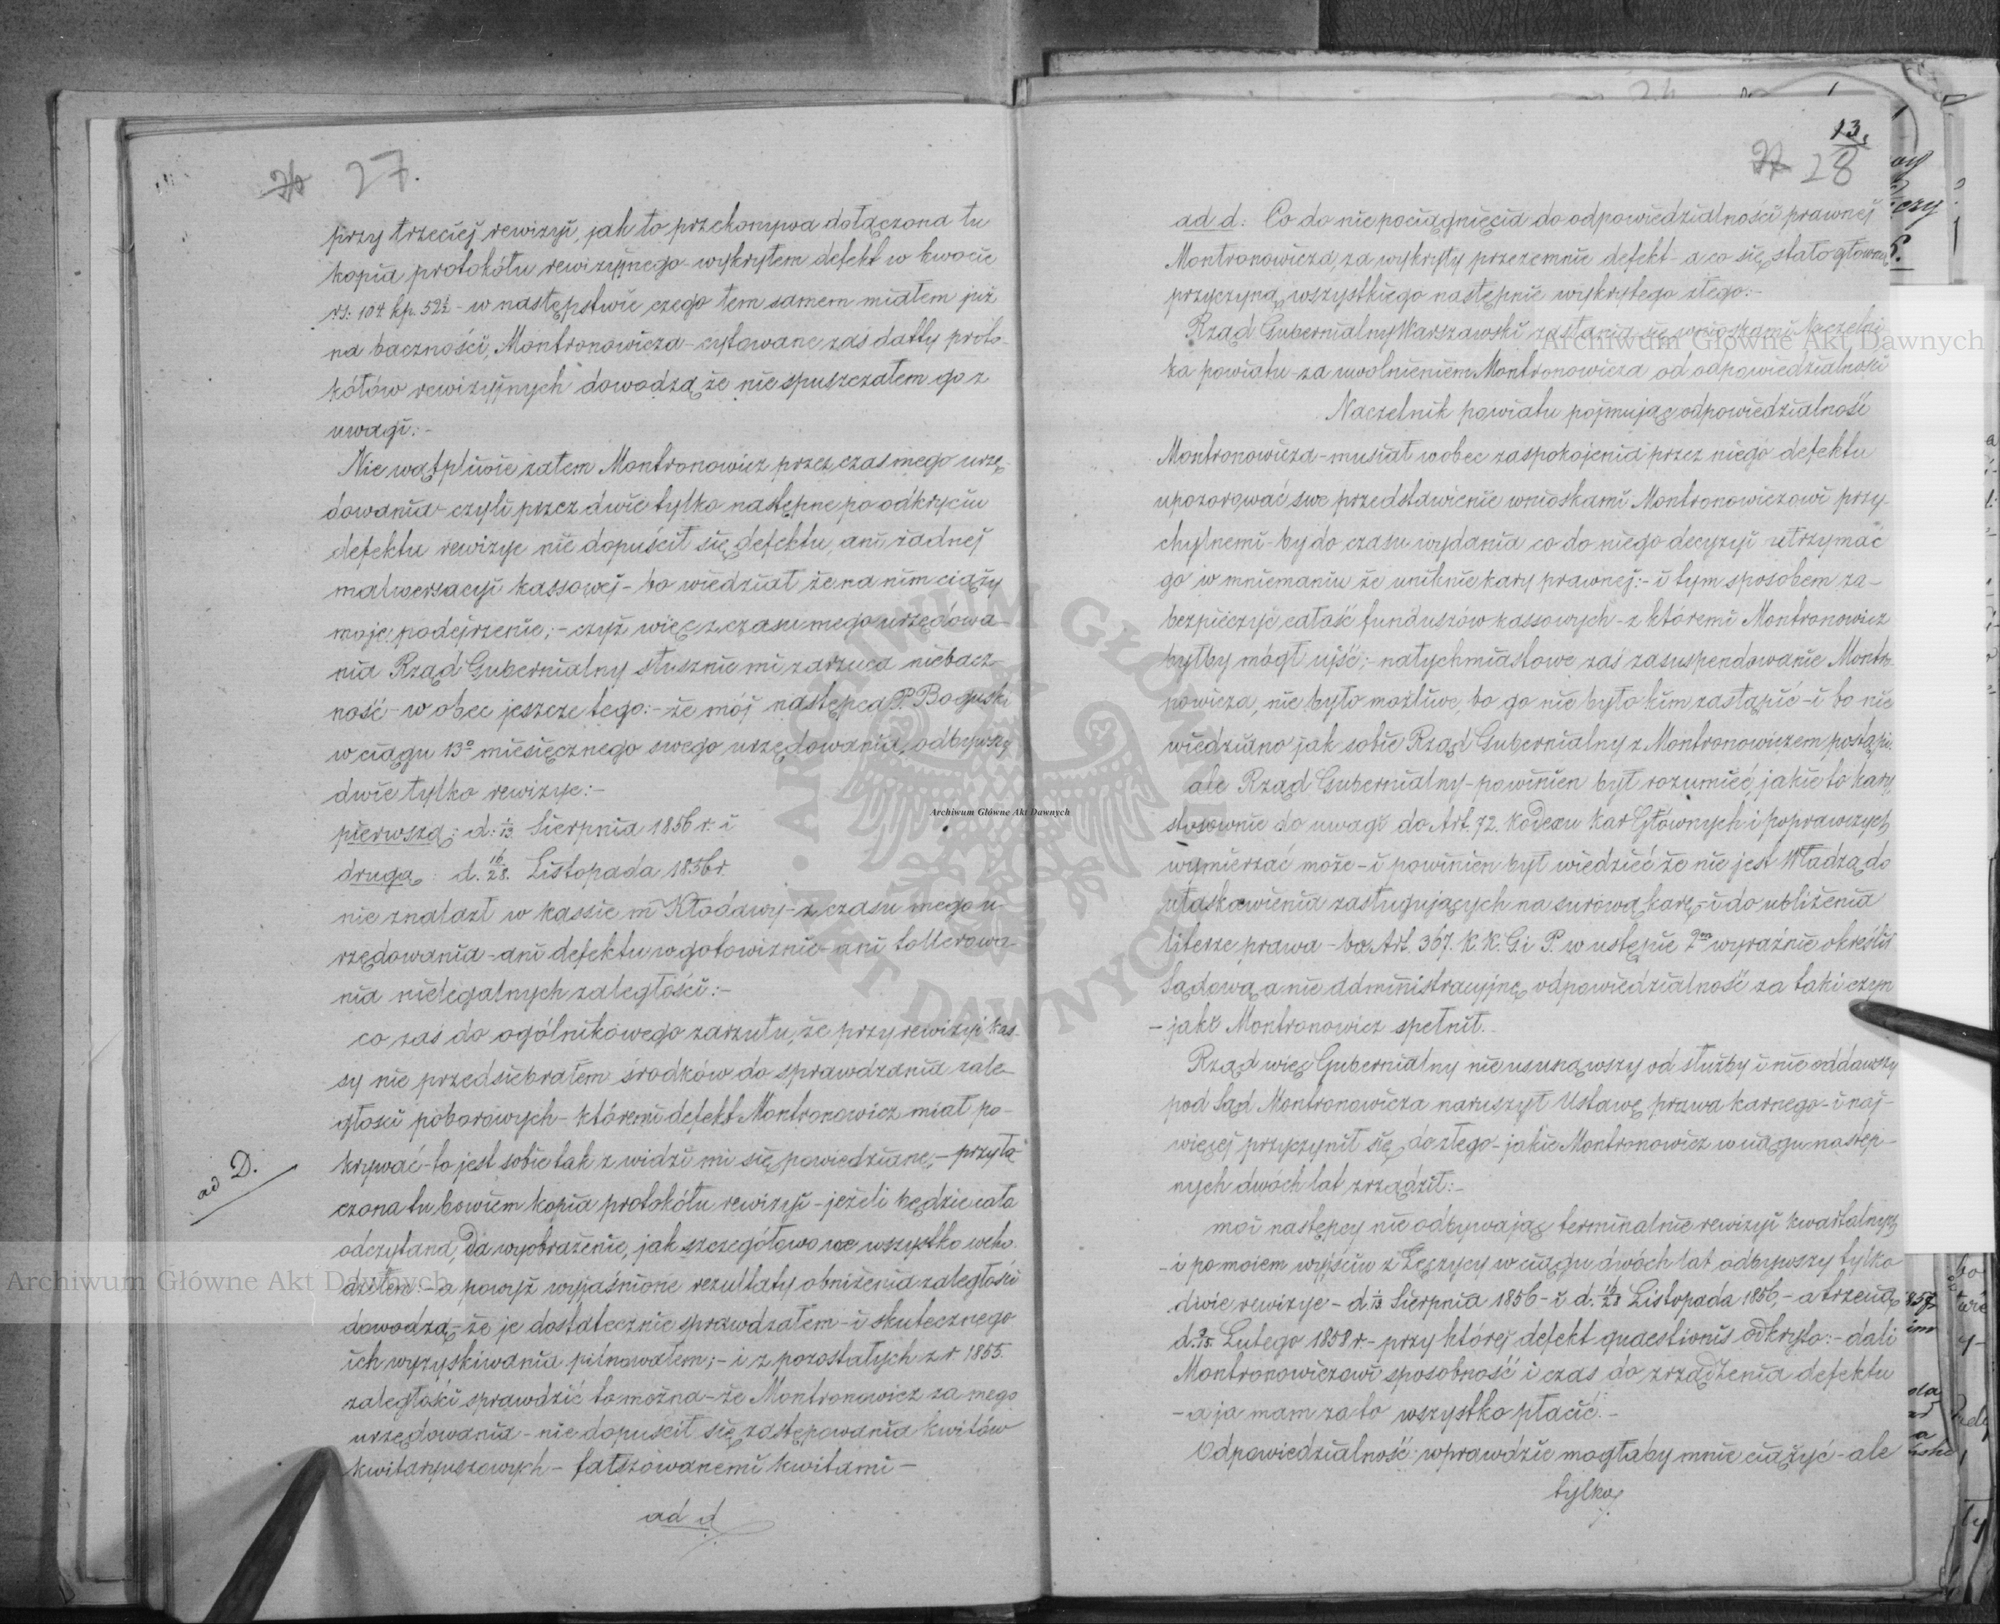 27.
przy trzeciej rewizyi, jak to przekonywa dołączona tu
kopia protokółu rewizyjnego wykryłem defekt w kwocie
rs. 104 kp. 52½ - w następstwie czego tem samem miałem już
na baczności, Montronowicza - cytowane zaś datty proto-
kółów rewizyjnych dowodzą że nie spuszczałem go z
uwagi:-
Nie wątpliwie zatem Montronowicz przez czas mego urzę-
dowania czyli przez dwie tylko następne po odkryciu
defektu rewizye nie dopuścił się defektu, ani żadnej
malwersacyi kassowej - bo wiedział że na nim ciąży
moje podejrzenie; - czyż więc z czasu mego urzędowa-
nia Rząd Gubernialny słusznie mi zarzuca niebacz-
ność - w obec jeszcze tego:- że mój następca P. Boguski
w ciągu 13º miesięcznego swego urzędowania, odbywszy
dwie tylko rewizye:-
pierwszą: d: 1/13 Sierpnia 1856 r. i
drugą: d. 16/28. Listopada 1856 r.
nie znalazł w kassie m. Kłodawy - z czasu mego u-
rzędowania - ani defektu w gotowiznie - ani tollerowa-
nia nielegalnych zaległości:-
co zaś do ogólnikowego zarzutu, że przy rewizyi kas-
sy nie przedsiebrałem środków do sprawdzania zale-
głości poborowych - któremi defekt Montronowicz miał po-
krywać - to jest sobie tak z widzi mi się powiedziane; - przyłą-
ad D.
czona tu bowiem kopia protokółu rewizyi - jeżeli będzie cała
odczytana, da wyobrażenie, jak szczegółowo we wszystko wcho-
dziłem: - a powyż wyjaśnione rezultaty obniżenia zaległości
dowodzą - że je dostatecznie sprawdzałem - i skutecznego
ich wyzyskiwania pilnowałem; - i z pozostałych z r. 1855.
zaległości sprawdzić to można - że Montronowicz za mego
urzędowania - nie dopuścił się zastępowania kwitów
kwitaryuszowych - fałszowanemi kwitami -
ad d
13.
28
ad d: Co do nie pociągnięcia do odpowiedzialności prawnej
Montronowicza, za wykryty przezemnie defekt - a co się stało główną
przyczyną wszystkiego następnie wykrytego złego:-
Rząd Gubernialny Warszawski zasłania się wnioskami Naczelni-
ka powiatu - za uwolnieniem Montronowicza od odpowiedzialności
Naczelnik powiatu pojmując odpowiedzialność
Montronowicza - musiał wobec zaspokojenia przez niego defektu
upozorować swe przedstawienie wnioskami Montronowiczowi przy-
chylnemi - by do czasu wydania co do niego decyzyi utrzymać
go w mniemaniu że uniknie kary prawnej:- i tym sposobem za-
bezpieczyć całość funduszów kassowych - z któremi Montronowicz
byłby mógł ujść; - natychmiastowe zaś zasuspendowanie Montro-
nowicza, nie było możliwe, bo go nie było kim zastąpić - i bo nie
wiedziano jak sobie Rząd Gubernialny z Montronowiczem postąpi.
ale Rząd Gubernialny - powinien był rozumieć, jakie to kary
stosownie do uwagi do Art. 72. Kodexu Kar Głównych i poprawczych
wymierzać może - i powinien był wiedzieć że nie jest Władzą do
ułaskawienia zasługujących na surową karę - i do ubliżenia
literze prawa - bo Art. 367. K. K. G. i P. w ustępie 2m wyraźnie określił
Sądową a nie administracyjną odpowiedzialność za taki czyn
- jaki Montronowicz spełnił.-
Rząd więc Gubernialny nie usunąwszy od służby i nie oddawszy
pod Sąd Montronowicza naruszył Ustawę prawa karnego - i naj-
więcej przyczynił się do złego - jakie Montronowicz w ciągu następ-
nych dwóch lat zrządził:-
moi następcy nie odbywając terminalnie rewizyi kwartalnych
- i po moiem wyjściu z Łęczycy w ciągu dwóch lat odbywszy tylko
dwie rewizye - d. 1/13 Sierpnia 1856 - i d. 16/28 Listopada 1856, - a trzecią
d. Lutego 1858 r. - przy której defekt quaestionis odkryto:- dali
Montronowiczowi sposobność i czas do zrządzenia defektu
- a ja mam za to wszystko płacić.-
Odpowiedzialność wprawdzie mogłaby mnie ciążyć - ale
tylko
Archiwum Główne Akt Dawnych
Archiwum Główne Akt Dawnych
Archiwum Główne Akt Dawnych
ARCHIWUM GŁÓWNE AKT DAWNYCH